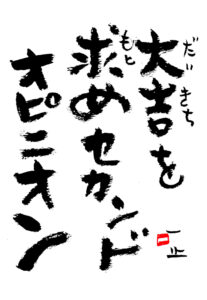 大吉を
だいきち
求めセカンド
もと
オピニオン
一止